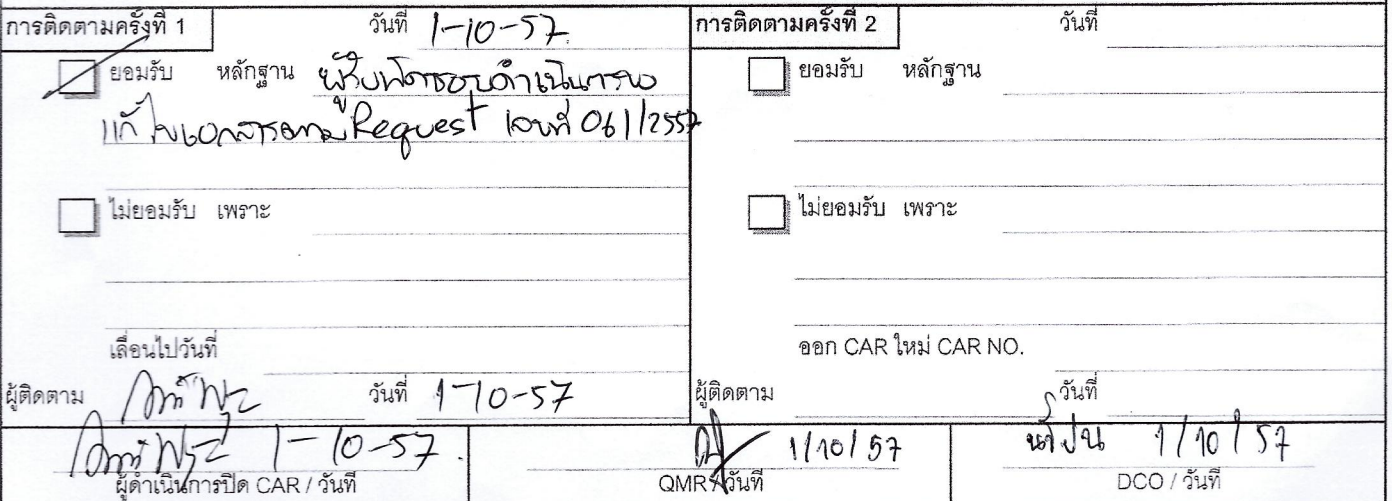 การติดตามครั้งที่ 1 วันที่ 1-10-57
ยอมรับ หลักฐาน ผู้รับผิดชอบดำเนินการ
แก้ไขเอกสารตาม Request เลขที่ 061/2557
ไม่ยอมรับ เพราะ
เลื่อนไปวันที่
ผู้ติดตาม วันที่ 1-10-57
1-10-57
ผู้ดำเนินการปิด CAR / วันที่
การติดตามครั้งที่ 2 วันที่
ยอมรับ หลักฐาน
ไม่ยอมรับ เพราะ
ออก CAR ใหม่ CAR NO.
ผู้ติดตาม วันที่
1/10/57
QMR / วันที่
1/10/57
DCO / วันที่